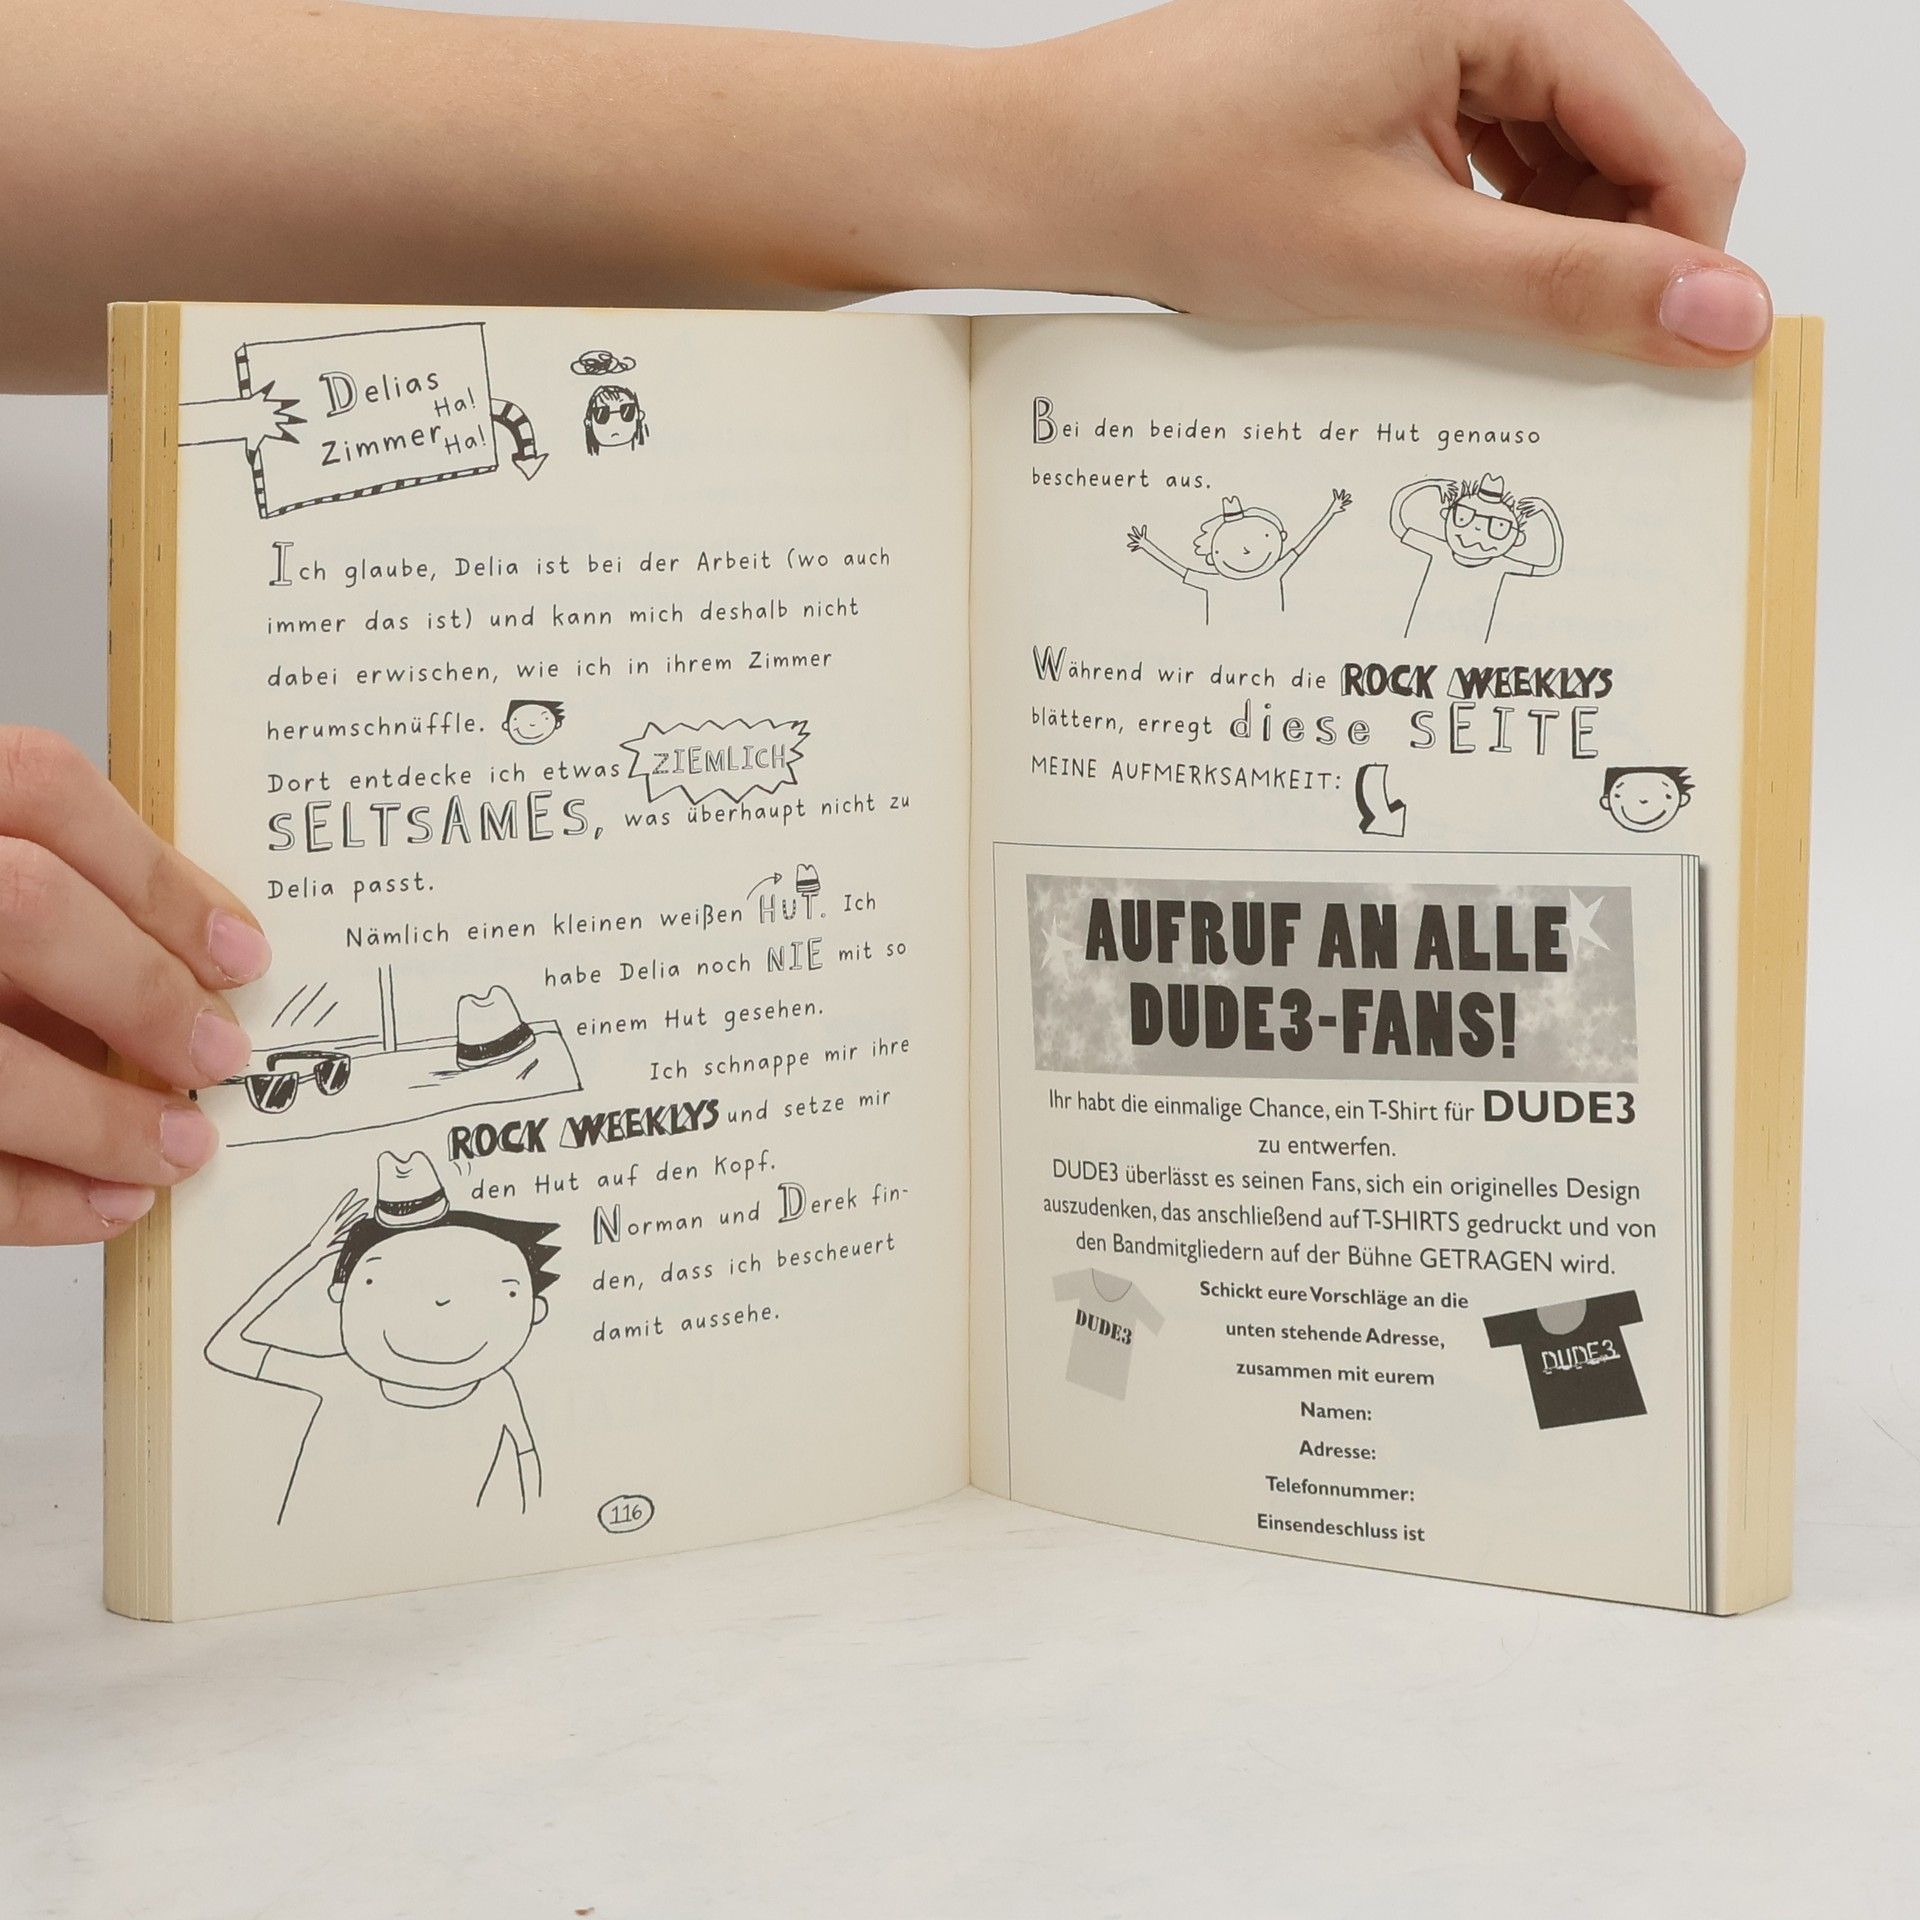 Delias
Ha!
Zimmer Ha!
Ich glaube, Delia ist bei der Arbeit (wo auch
immer das ist) und kann mich deshalb nicht
dabei erwischen, wie ich in ihrem Zimmer
herumschnüffle.
Dort entdecke ich etwas ZIEMLICH
SELTSAMES, was überhaupt nicht zu
Delia passt.
Nämlich einen kleinen weißen HUT. Ich
habe Delia noch NIE mit so
einem Hut gesehen.
Ich schnappe mir ihre
ROCK WEEKLYS und setze mir
den Hut auf den Kopf.
Norman und Derek fin-
den, dass ich bescheuert
damit aussehe.
116
Bei den beiden sieht der Hut genauso
bescheuert aus.
Während wir durch die ROCK WEEKLYS
blättern, erregt diese SEITE
MEINE AUFMERKSAMKEIT:
AUFRUF AN ALLE
DUDE3-FANS!
Ihr habt die einmalige Chance, ein T-Shirt für DUDE3
zu entwerfen.
DUDE3 überlässt es seinen Fans, sich ein originelles Design
auszudenken, das anschließend auf T-SHIRTS gedruckt und von
den Bandmitgliedern auf der Bühne GETRAGEN wird.
Schickt eure Vorschläge an die
unten stehende Adresse,
zusammen mit eurem
Namen:
Adresse:
Telefonnummer:
Einsendeschluss ist
DUDE3
DUDE3